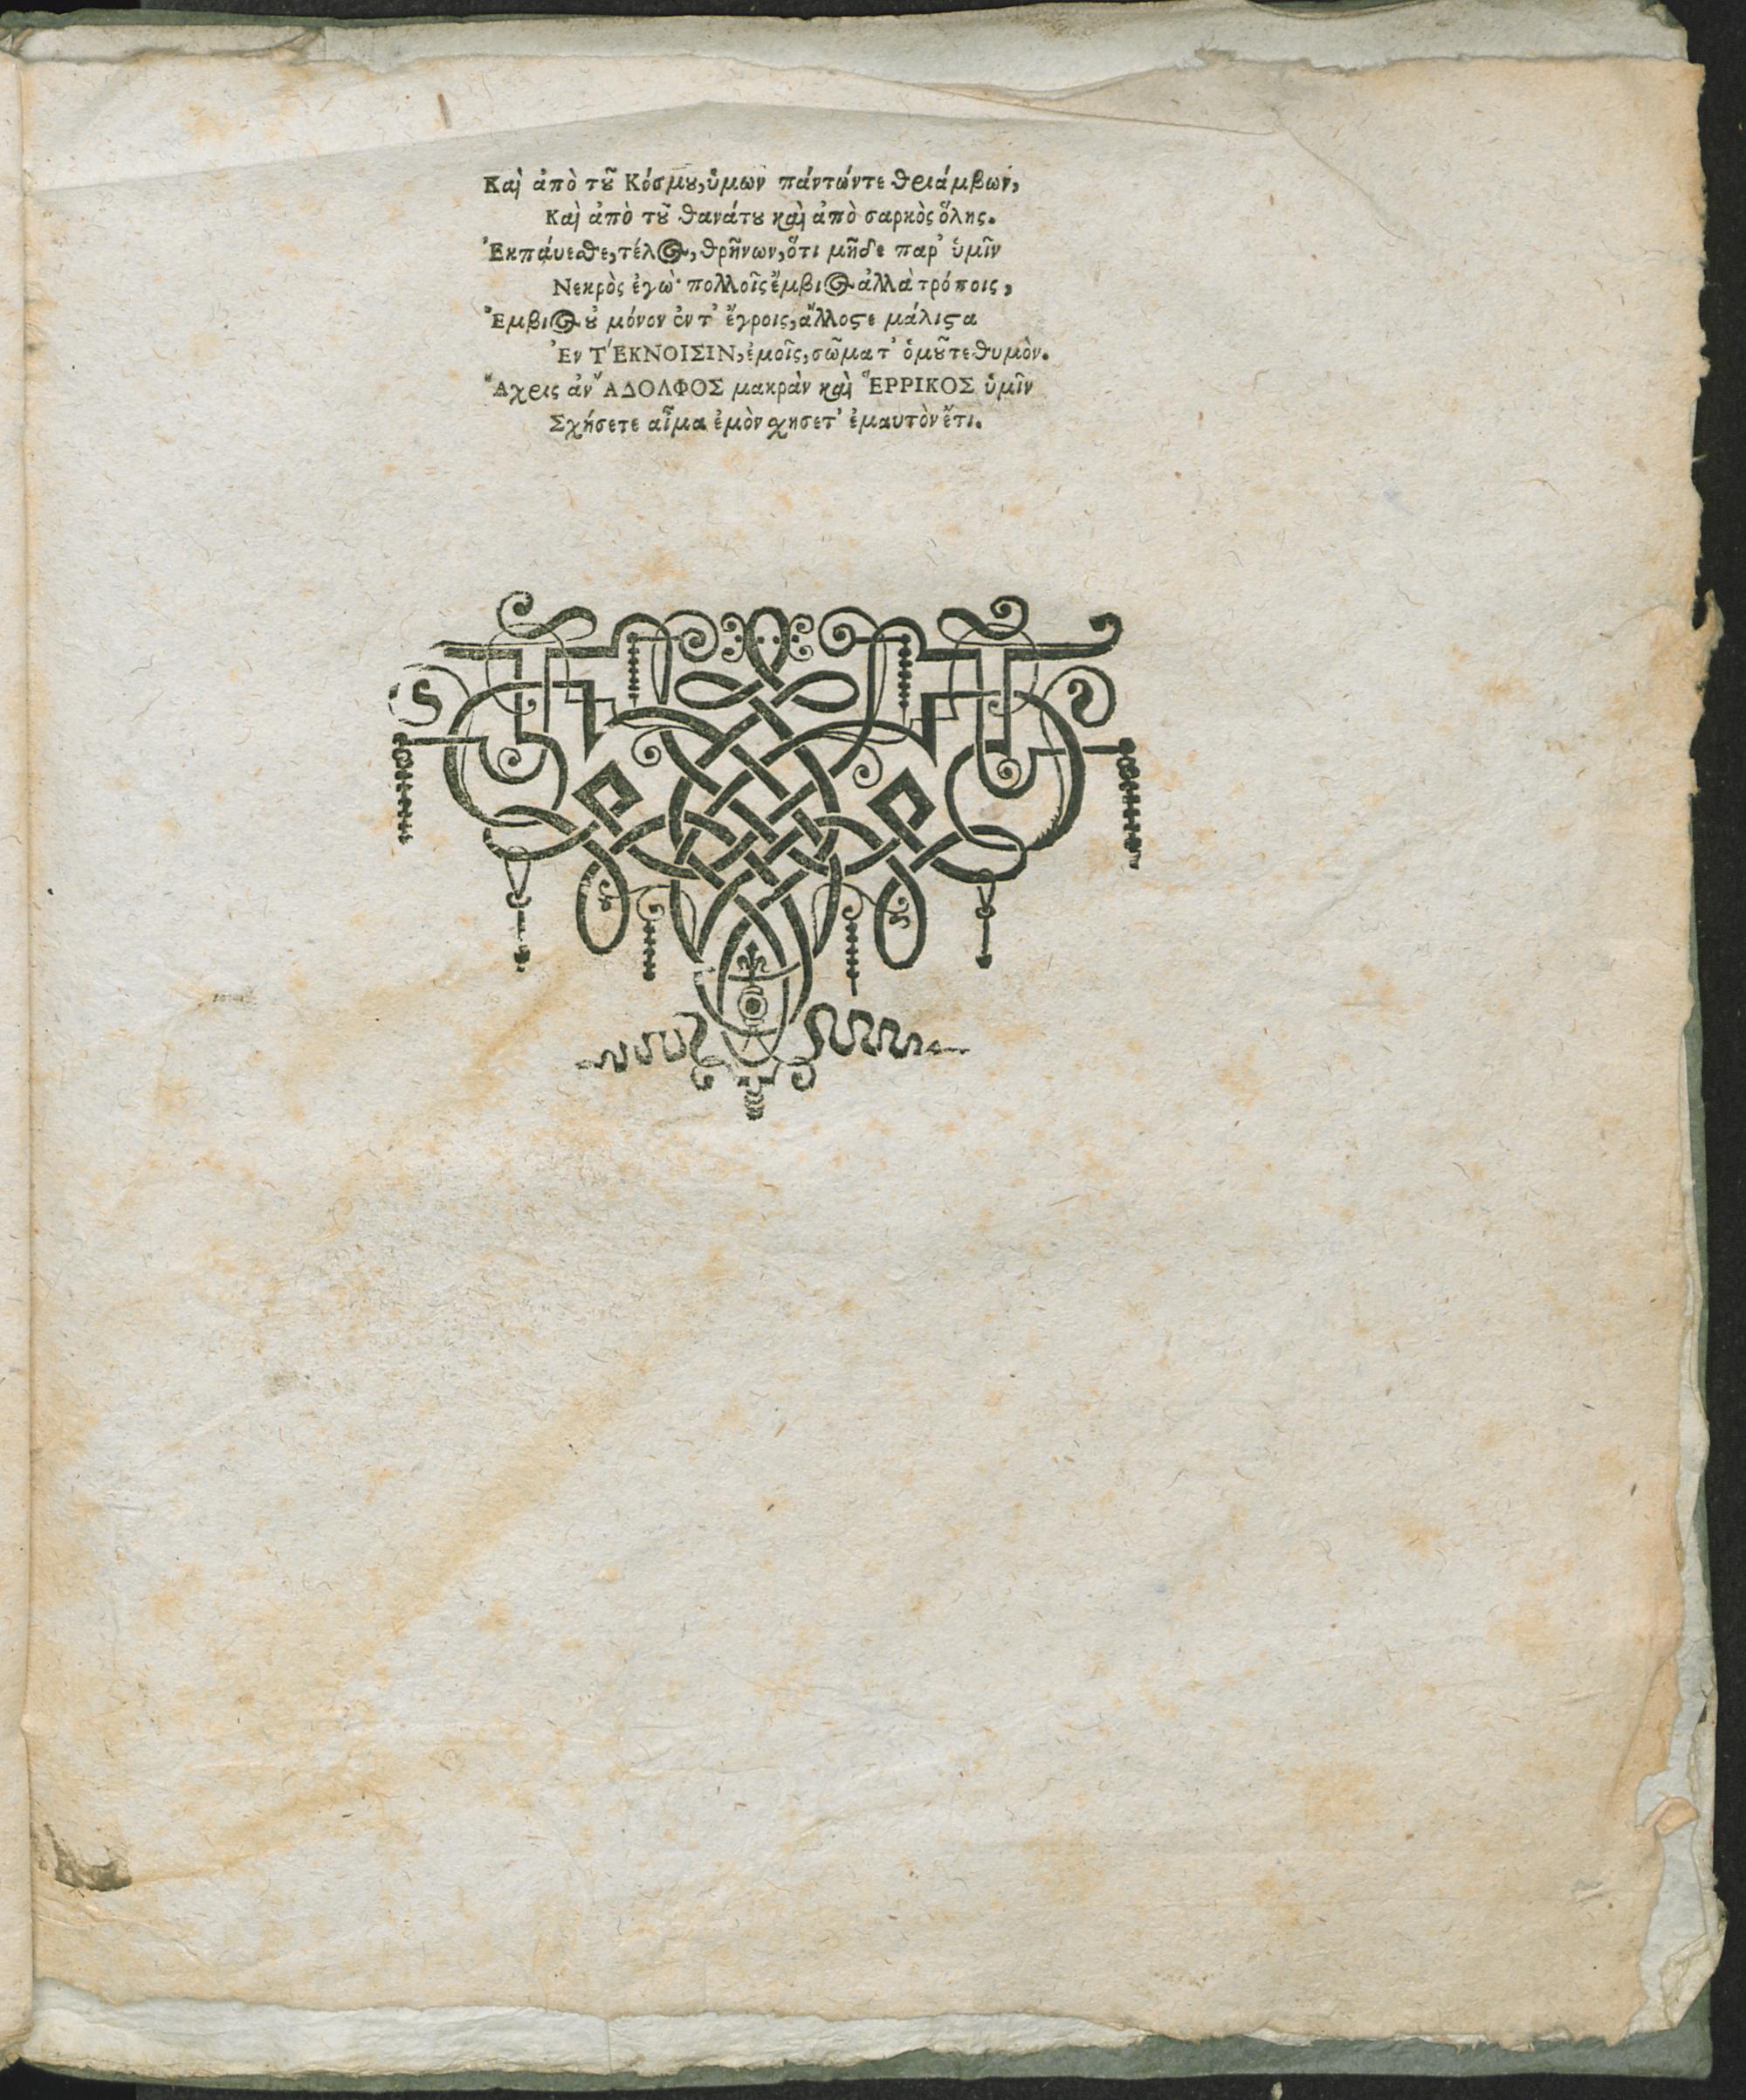 Καὶ ἀπὸ τȣ͂ Κόσμȣ, ὑμων πάντώντε θριάμβων,
Καὶ ἀπὸ τȣ͂ θανάτȣ καὶ ἀπὸ σαρκὸς ὅλης.
Ἐκπάυεσθε, τέλος, θρῆνων, ὅτι μῆδε παρ᾽ ὑμῖν
Νεκρὸς ἐγὼ· πολλοῖς ἔμβιος ἀλλὰ τρόποις,
Ἔμβιος ȣ̓ μόνον ἐν τ᾽ ἔγροις, ἄλλοςε μάλιϛα
Ἐν ΤΈΚΝΟΙΣΙΝ, ἐμοῖς, σῶμα τ᾽ ὁμȣ͂τε θυμὸν.
Ἄχρις ἀν ἌΔΟΛΦΟΣ μακρὰν καὶ ἝΡΡΙΚΟΣ ὑμῖν
Σχήσετε αἷμα ἐμὸν χησετ᾽ ἐμαυτὸν ἔτι.